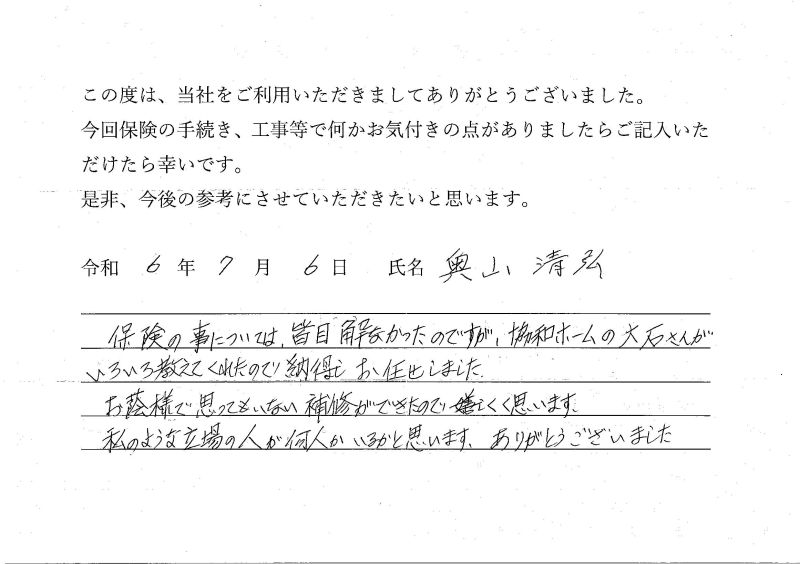 この度は、当社をご利用いただきましてありがとうございました。
今回保険の手続き、工事等で何かお気付きの点がありましたらご記入いた
だけたら幸いです。
是非、今後の参考にさせていただきたいと思います。
令和 6 年 7 月 6 日 氏名 奥山 清弘
保険の事については、皆目解なかったのですが、協和ホームの大石さんが
いろいろ教えてくれたので納得しお任せしました。
お蔭様で思ってもいない補修ができたので嬉しく思います。
私のような立場の人が何人かいるかと思います、ありがとうございました